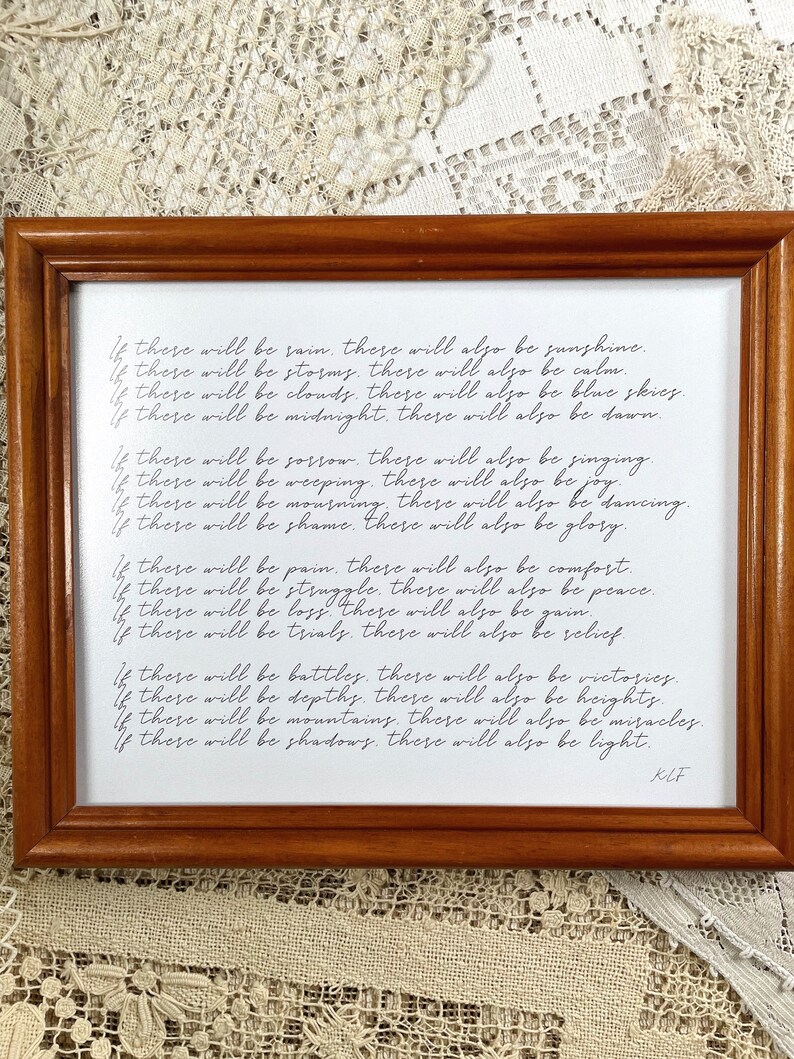 If there will be rain, there will also be sunshine.
If there will be storms, there will also be calm.
If there will be clouds, there will also be blue skies.
If there will be midnight, there will also be dawn.
If there will be sorrow, there will also be singing.
If there will be weeping, there will also be joy.
If there will be mourning, there will also be dancing.
If there will be shame, there will also be glory.
If there will be pain, there will also be comfort.
If there will be struggle, there will also be peace.
If there will be loss, there will also be gain.
If there will be trials, there will also be relief.
If there will be battles, there will also be victories.
If there will be depths, there will also be heights.
If there will be mountains, there will also be miracles.
If there will be shadows, there will also be light.
KLF